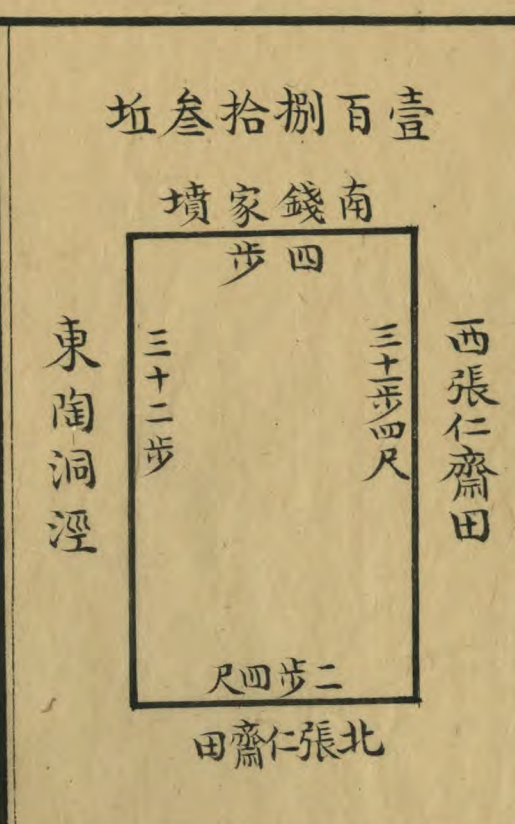 壹百捌拾叁坵
南錢家墳
四步
西張仁齋田
三十一步四尺
三十二步
東陶洞涇
二步四尺
北張仁齋田